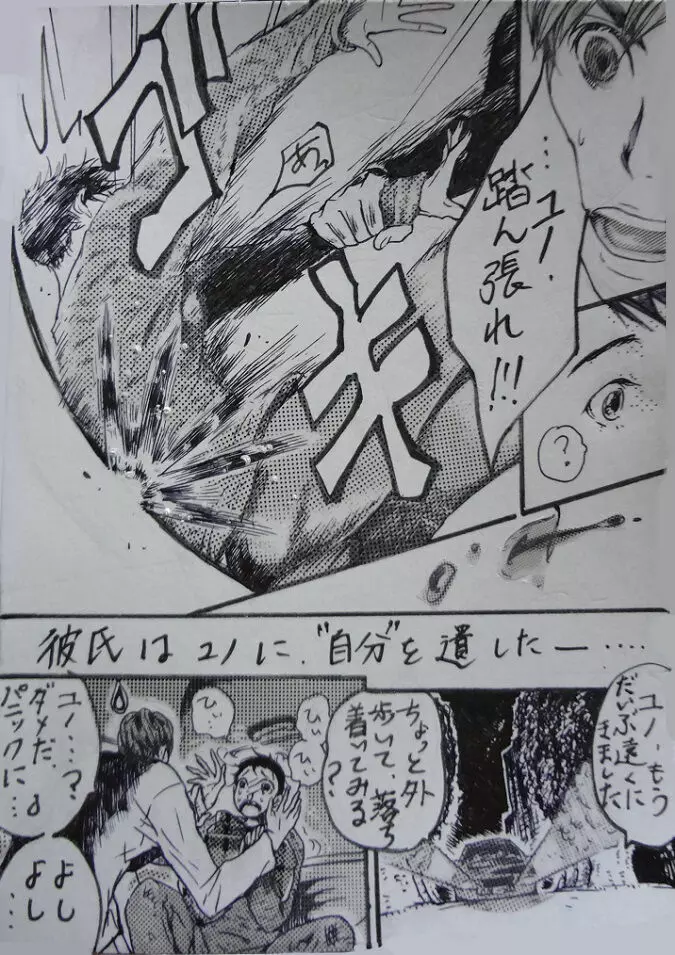 …ユノ.
踏ん張れ!!!
あっ
キ
?
彼氏はユノに、"自分"を遺したー‥‥‥
ユノ、もう
だいぶ遠くに
きました
ちょっと外
歩いて、落ち
着いてみる
?
ひぃ
ひぃ
ひぃ
ユノ…?
ダメだ、
パニックに…
よし
よし
…